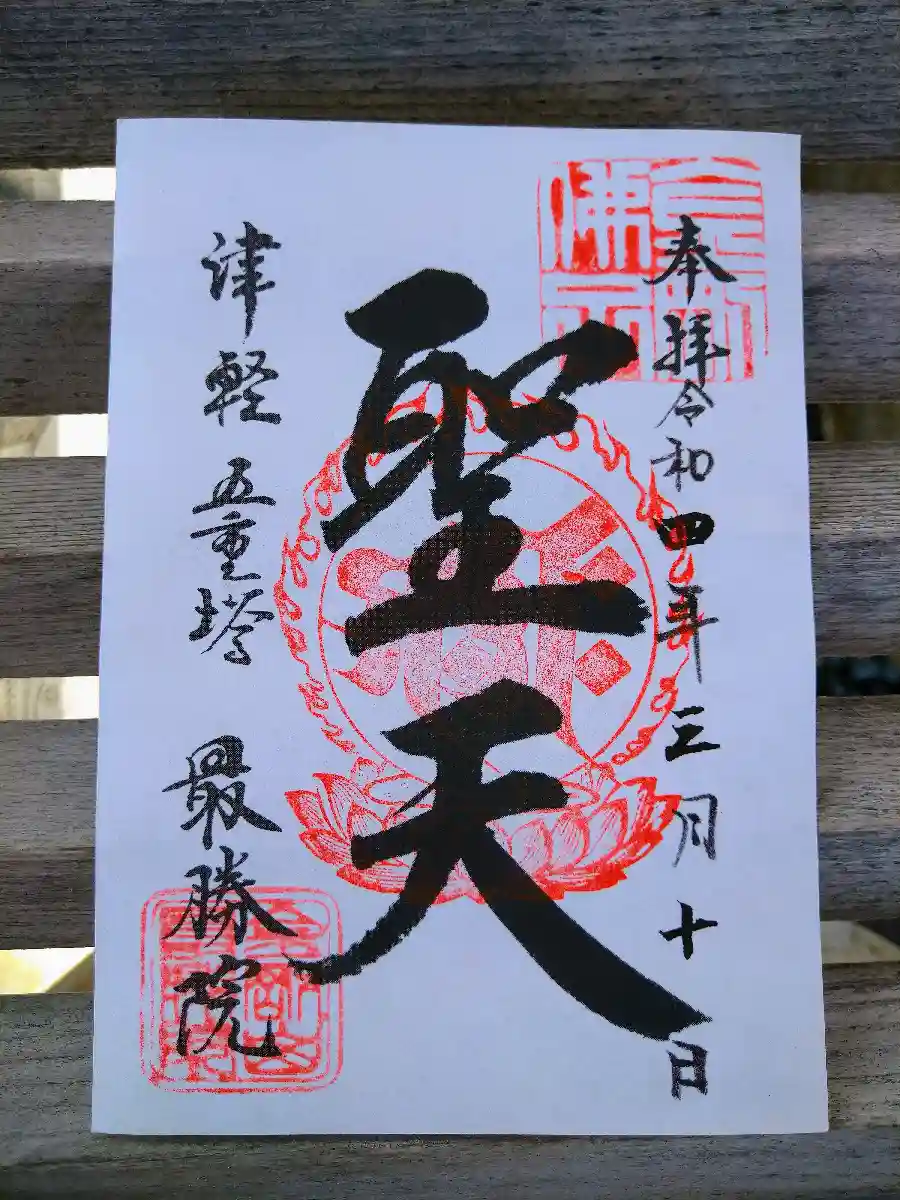 奉拝 令和四年三月十日
聖天
津軽 五重塔 最勝院